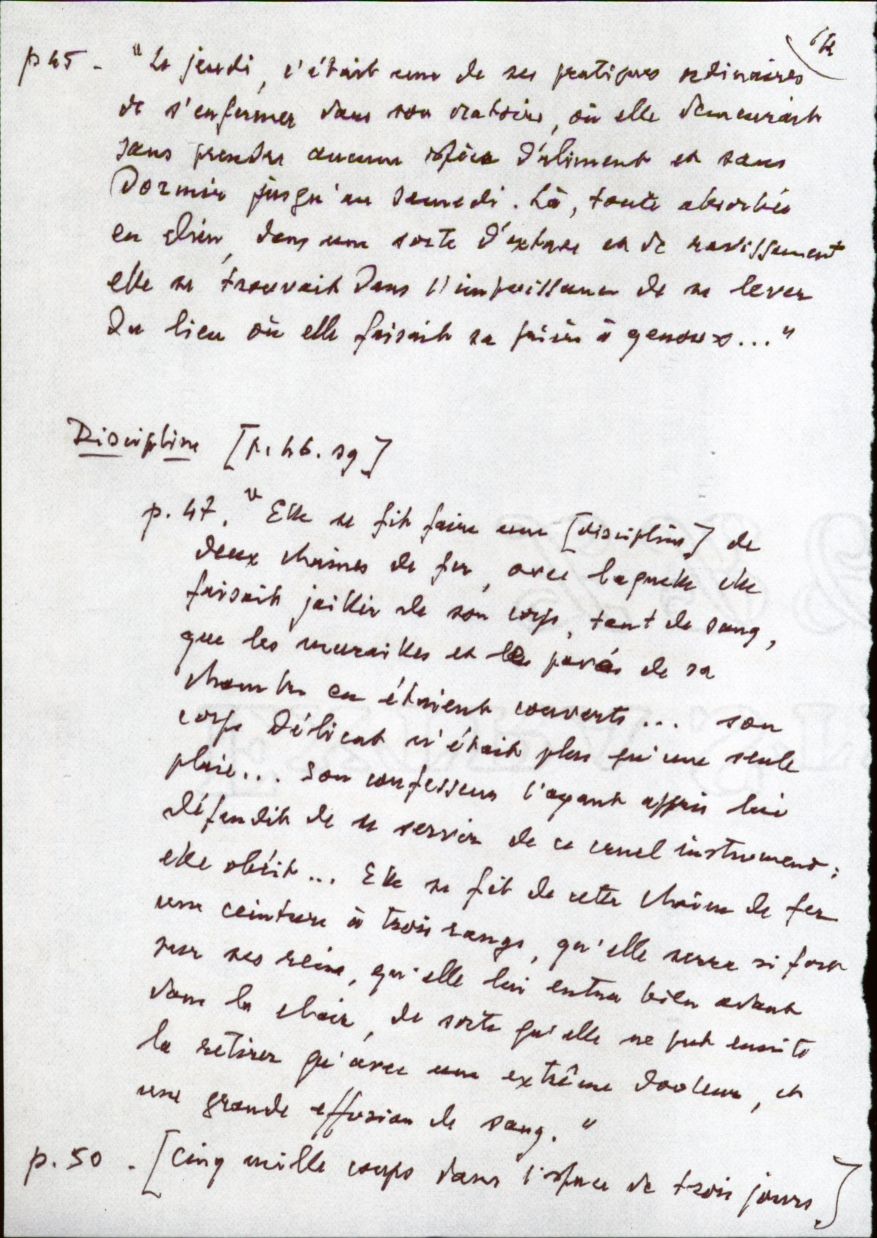 p 45 - "Le jeudi, c'était une de ses pratiques ordinaires
de s'enfermer dans son oratoire, où elle demeurait
sans prendre aucune espèce d'aliment et sans
dormir jusqu'au samedi. Là, toute absorbée
en Dieu, dans une sorte d'extase et de ravissement
elle se trouvait dans l'impuissance de se lever
du lieu où elle faisait sa prière à genoux..."
Discipline [p. 46. sq]
p. 47. "Elle se fit faire une [discipline] de
deux chaînes de fer, avec laquelle elle
faisait jaillir de son corps, tant de sang,
que les murailles et les pavés de sa
chambre en étaient couverts... son
corps délicat n'était plus qu'une seule
plaie... Son confesseur l'ayant appris lui
défendit de se servir de ce cruel instrument;
elle obéit... Elle se fit de cette chaîne de fer
une ceinture à trois rangs, qu'elle serra si fort
sur ses reins, qu'elle lui entra bien avant
dans la chair, de sorte qu'elle ne put ensuite
la retirer qu'avec une extrême douleur, et
une grande effusion de sang."
p. 50 - [Cinq mille coups dans l'espace de trois jours]